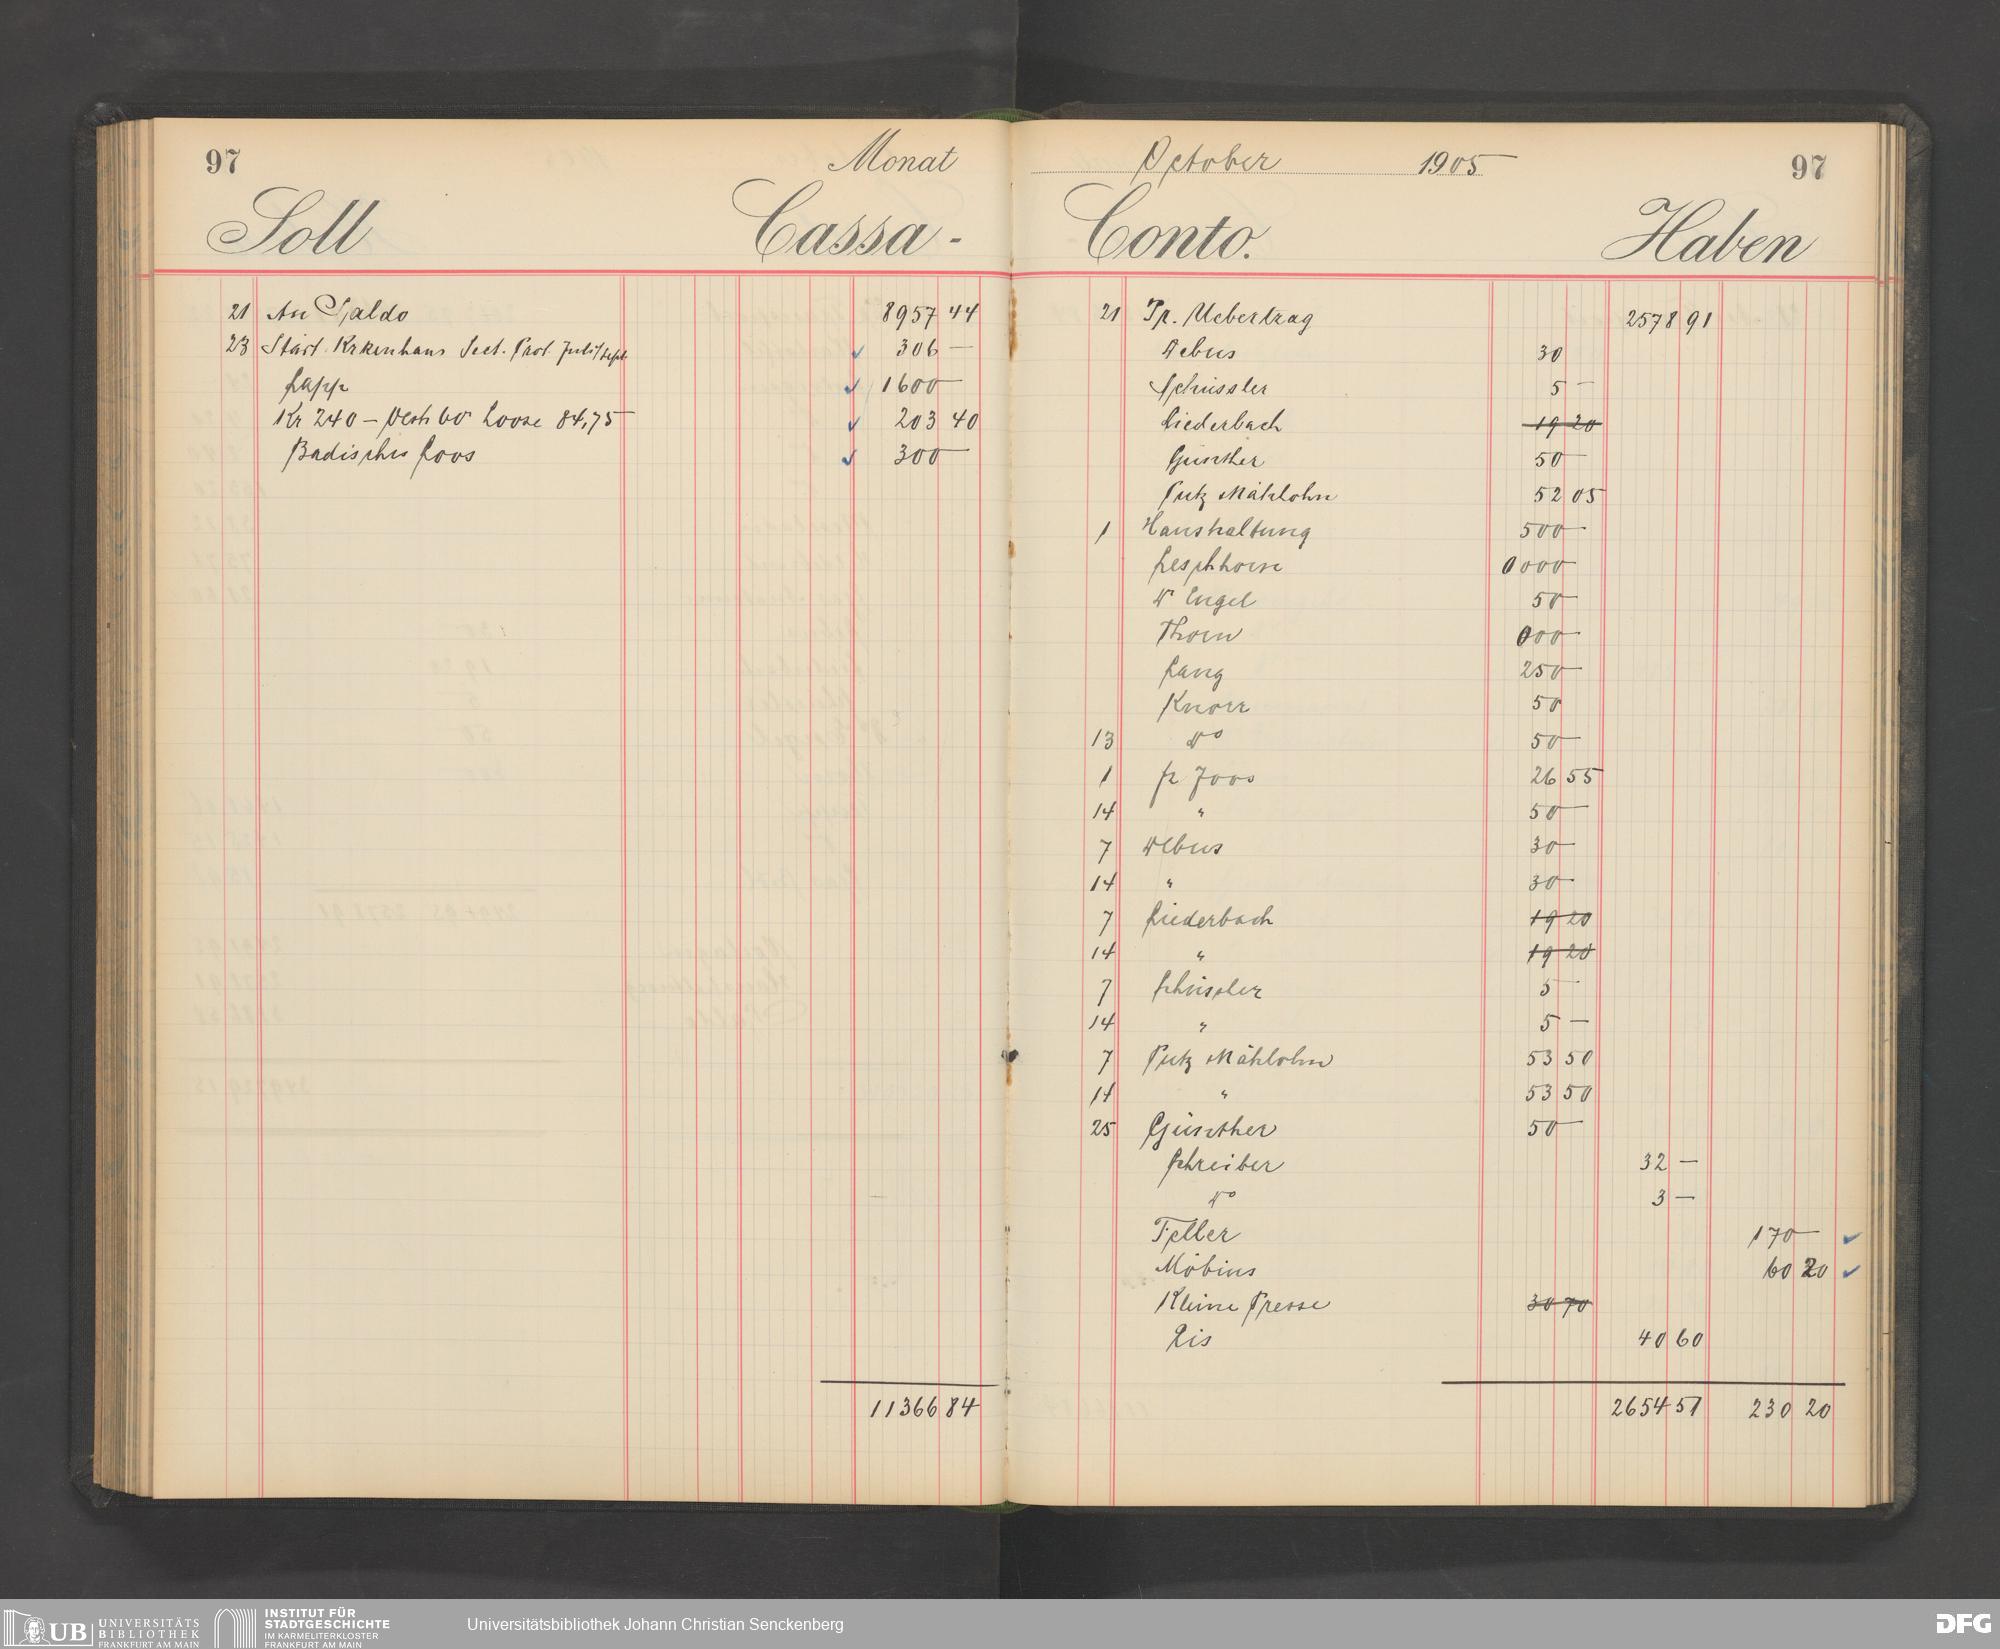 97
Monat
Soll
Cassa-
21 An Saldo 8957 44
23 Städt. Krkenhaus Sect. Prot. Juli/Sept 306 —
Lapp 1600 —
Kr 240 — Oestr 60 Loose 84,75 203 40
Badisches Loos 300 —
11366 84
October 1905
97
Conto.
Haben
21 Pr. Uebertrag 2578 91
Debus 30
Schüssler 5 —
Liederbach 19 20
Günther 50 —
Putz Mählohn 52 05
1 Haushaltung 500 —
0000 —
Dr Engel 50 —
Thorn 000 —
Lang 250 —
Knorr 50
13 do 50 —
1 Fr Joos 26 55
14 " 50 —
7 Debus 30 —
14 " 30 —
7 Liederbach 19 20
14 " 19 20
7 Schüssler 5 —
14 " 5 —
7 Putz Mählohn 53 50
14 " 53 50
25 Günther 50 —
Schreiber 32 —
do 3 —
Feller 170 —
Möbius 60 20
Kleine Presse 30 70
Eis 40 60
2654 51 230 20
UB UNIVERSITÄTS
BIBLIOTHEK
FRANKFURT AM MAIN
INSTITUT FÜR
STADTGESCHICHTE
IM KARMELITERKLOSTER
FRANKFURT AM MAIN
Universitätsbibliothek Johann Christian Senckenberg
DFG